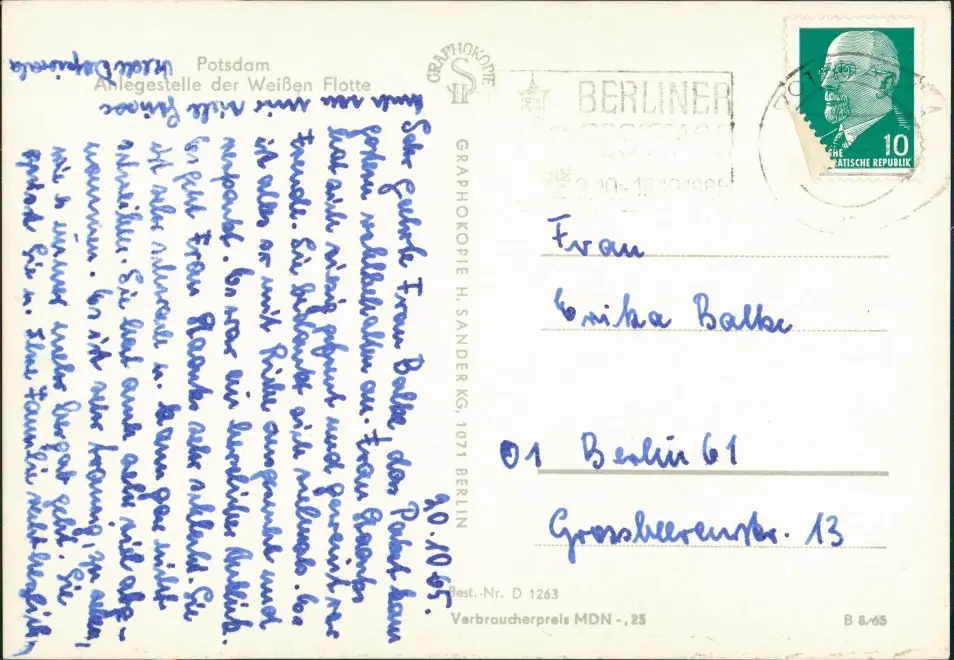 Potsdam
Anlegestelle der Weißen Flotte
GRAPHOKOPIE
H S
GRAPHOKOPIE H. SANDER KG, 1071 BERLIN
BERLINER
10
DEMOKRATISCHE REPUBLIK
20.10.65.
Sehr geehrte Frau Balke, das Paket kam
gestern wohlbehalten an. Frau Staats
hat sich riesig gefreut und geweint vor
Freude. Sie bedankt sich vielmals. Es
ist alles so mit Liebe ausgesucht und
verpackt. Es war ein herrlicher Anblick.
Es geht Frau Staats sehr schlecht. Sie
ist sehr schwach u. kann gar nicht
schreiben. Sie hat auch sehr viel abge-
nommen. Es ist sehr traurig, zu sehen,
wie es immer mehr bergab geht. Sie
grüsst Sie u. Ihre Familie recht herzlich,
auch von mir viele Grüsse
Frau
Erika Balke
01 Berlin 61
Grossbeerenstr. 13
Best.-Nr. D 1263
Verbraucherpreis MDN -,25
B 8/65